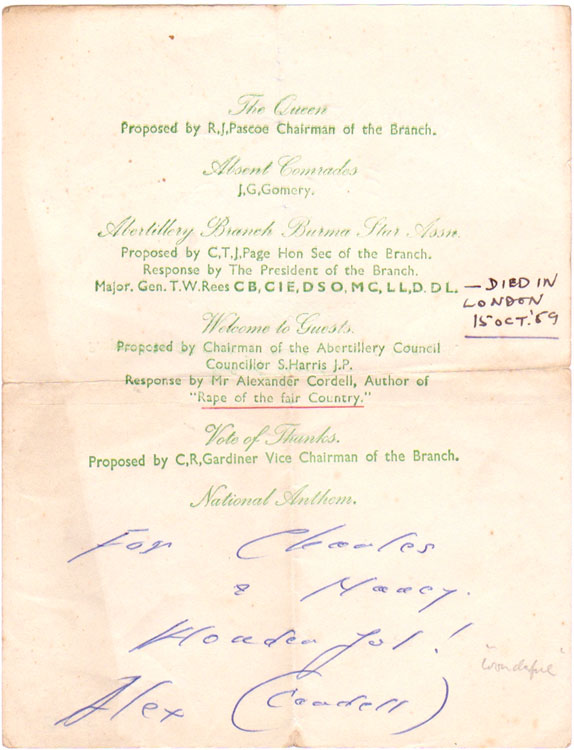 The Queen
Proposed by R,J,Pascoe Chairman of the Branch.
Absent Comrades
J,G,Gomery.
Abertillery Branch Burma Star Assn.
Proposed by C,T,J,Page Hon Sec of the Branch.
Response by The President of the Branch.
Major. Gen. T.W.Rees CB,CIE,DSO,MC,LL,D. DL. — DIED IN
LONDON
15 OCT. '59
Welcome to Guests.
Proposed by Chairman of the Abertillery Council
Councillor S.Harris J.P.
Response by Mr Alexander Cordell, Author of
"Rape of the fair Country."
Vote of Thanks.
Proposed by C,R,Gardiner Vice Chairman of the Branch.
National Anthem.
For Charles
& Nancy.
Wonderful!
"wonderful"
Alex (Cordell.)